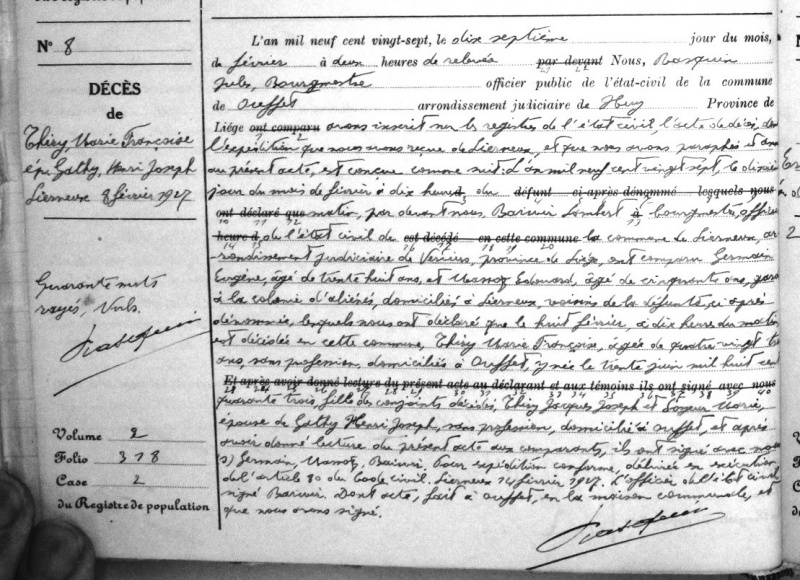 N° 8
DÉCÈS
de
Thiry, Marie Françoise
ép. Gathy, Henri Joseph
Lierneux 8 février 1927
Quarante mots
rayés, nuls.
Volume 2
Folio 318
Case 2
du Registre de population
L'an mil neuf cent vingt-sept, le dix septième jour du mois,
de février à deux heures de relevée par devant Nous, Rasquin
Jules, Bourgmestre officier public de l'état-civil de la commune
de Ouffet arrondissement judiciaire de Huy Province de
Liége ont comparu avons inscrit sur les registres de l'état civil, l'acte de décès, dont
l'expédition que nous avons reçue de Lierneux, et que nous avons paraphée et
au présent acte, est conçue comme suit. L'an mil neuf cent vingt sept, le
jour du mois de février à dix heures du défunt ci-après dénommé lesquels nous
ont déclaré que matin, par devant nous, Lambert à bourgmestre, officier
heure d de l'état civil de est décédé en cette commune la commune de Lierneux, ar
rondissement judiciaire de Verviers, province de Liége, ont comparu Germain
Eugène, âgé de trente huit ans, et Edouard, âgé de cinquante ans,
à la colonie d'aliénés, domiciliés à Lierneux, voisins de la défunte, ci après
dénommée, lesquels nous ont déclaré que le huit février, à dix heures du matin
est décédée en cette commune, Thiry Marie Françoise, âgée de quatre vingt
ans, sans profession, domiciliée à Ouffet, y née le trente juin mil huit cent
Et après avoir donné lecture du présent acte au déclarant et aux témoins ils ont signé avec nous
quarante trois, fille des conjoints décédés, Thiry Jacques Joseph et Marie,
épouse de Gathy Henri Joseph, sans profession, domicilié à Ouffet, et après
avoir donné lecture du présent acte aux comparants, ils ont signé avec nous
s) Germain, Pour expédition conforme, délivrée en exécution
de l'article 80 du Code civil. Lierneux 14 février 1927. L'officier de l'état civil
signé Dont acte, fait à Ouffet, en la maison communale, et
que nous avons signé.